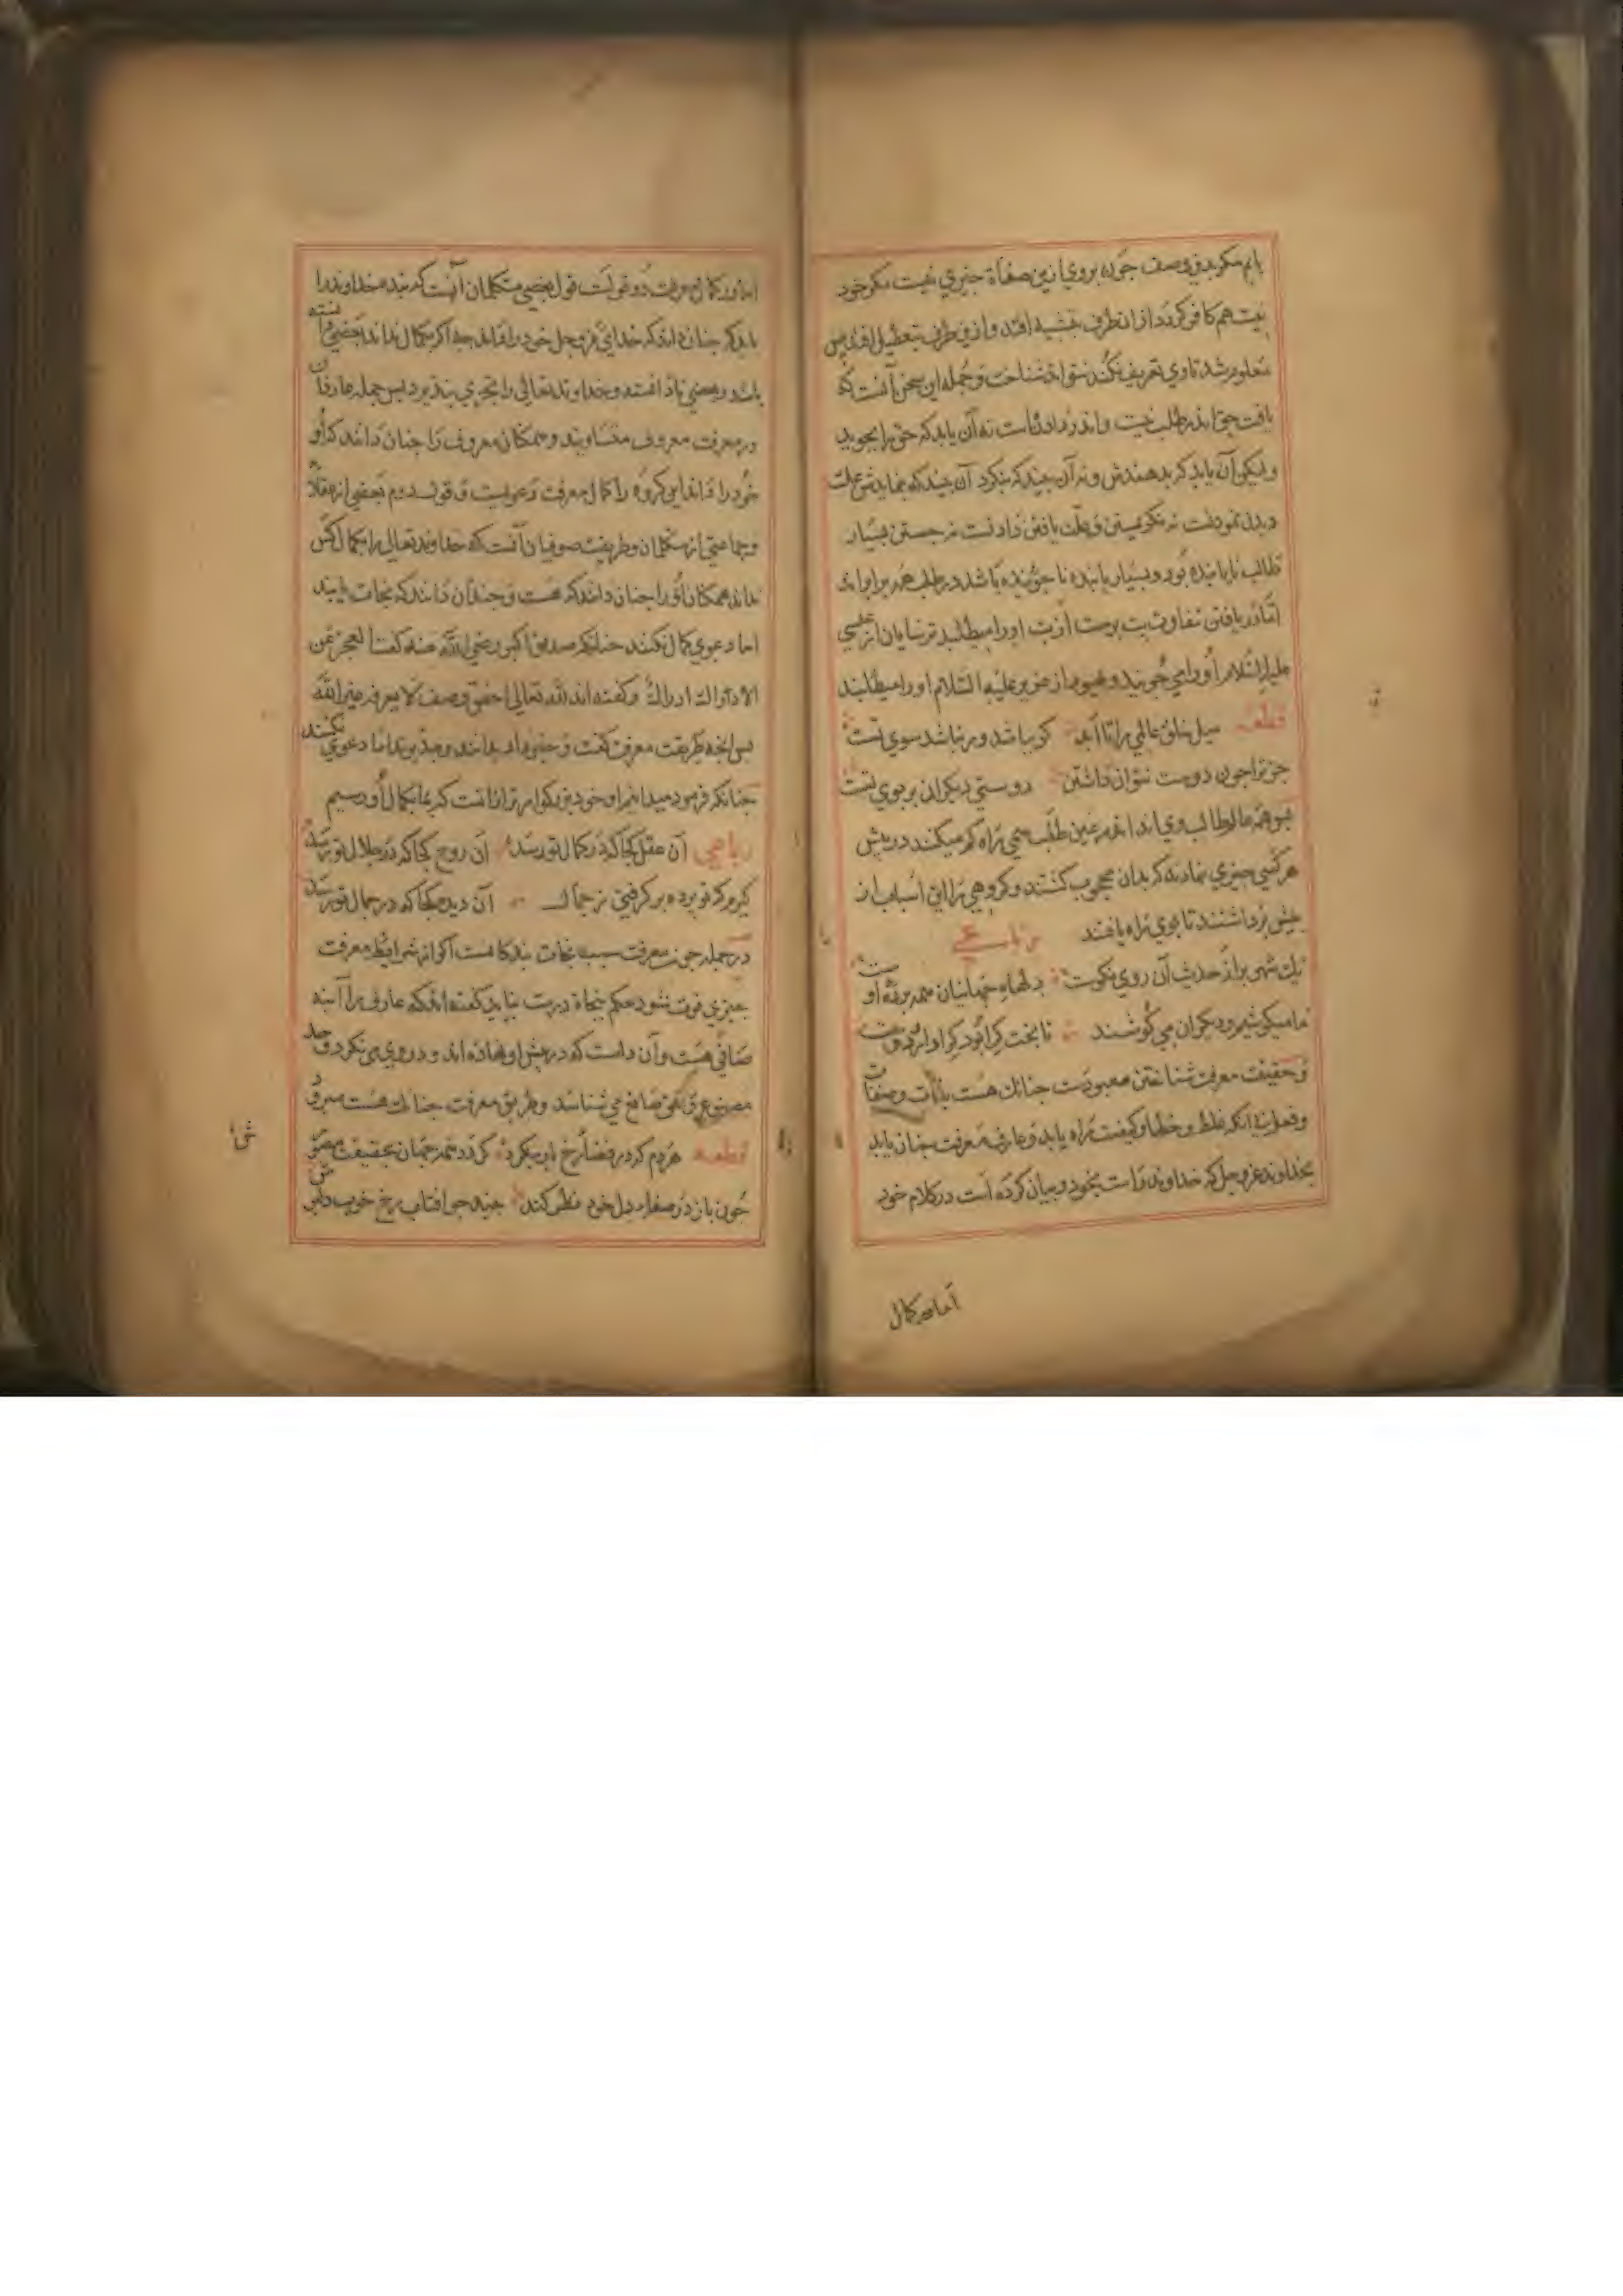 یابم مکر بدین وصف چون بروی ازین صفاة چیزی نیست مکر خود
نیست هم کافر کردد از ان طرف بتشبیه افتد و ازین طرف بتعطیل افتد پس
معلوم شد تا وی تعریف نکند نتوانند شناخت و جمله این سخن آنست که
یافت حق اندر طلب نیست و اندر دادنست نه آن یابد که حق را بجوید
ولیکن آن یابد که بدهندش و نه آن بیند که بنکرد آن بیند که بنمایندش علت
دیدن نمودنست نه نکریستن و علت یافتن دادنست نه جستن بسیار
طالب نایابنده بود و بسیار یابنده ناجوینده باشد در طلب همه برابراند
اما در یافتن تفاوت است اورا میطلبد ترسایان از عیسی
علیه السلام اورا می جویند و جهود از عزیر علیه السلام اورا میطلبند
قطعه میل خلق عالمی را تا ابد کر باشد ور نباشد سوی تست
جز ترا چون دوست نتوان داشتن دوستی دیکران بر بوی تست
پس همه عالم طالب وی اند اما هم در عین طلب می راه کم میکنند در پیش
هر کسی چیزی نهادند که بدان محجوب کشتند و کروهی را این اسباب از
پیش برداشتند تا بوی راه یافتند رباعی
یک شهر پر از حدیث آن روی نکوست دلهاء جهانیان همه برده اوست
ما میکوشیم و دیکران می کوشند تا بخت کرا بود کرا دارد دوست
و حقیقت معرفت شناختن معبودست چنانک هست بذات و صفات
و فعل بی آنکه غلط و خطا و کیفیت را راه یابد و عارف معرفت چنان یابد
بخداوند عز و جل که خداوند راست بخود و بیان کرده است در کلام خود
اما در کمال
اما در کمال معرفت دو قولست قول بعضی متکلمان آنست که بنده خداوند را
باید که چنان داند که خدای عز و جل خود را داند چه اکر بکمال نداند بعضی دانسته
باشد و بعضی نادانسته و خداوند تعالی را تجزی نپذیرد پس جمله عارفان
در معرفت معروف متساویند و همکان معروف را چنان دانند که او
خود را داند این کروه را کمال معرفت دعویست و قول دوم بعضی از عقلا
و جماعتی از متکلمان و طریقت صوفیان آنست که خداوند تعالی را بکمال کس
نداند همکان او را چنان دانند که هست و چندان دانند که نجات یابند
اما دعوی کمال نکنند چنانکه صدیق اکبر رضی الله عنه کفت العجز عن
الادراک ادراک و کفته اند لله تعالی اخص وصف لا یعرفه غیر الله
پس انچه طریقت معرفت کفت و حقیقت بدانند و بجویند اما دعوی نکنند
چنانکه فرمود میدانیم او خود بزرکوار تر از انست که ما بکمال او رسیم
رباعی آن عقل کجا که در کمال تو رسد آن روح کجا که در جلال تو رسد
کیرم که تو پرده بر کرفتی ز جمال آن دیده کجا که در جمال تو رسد
در جمله چون معرفت سبب نجات بندکانست اکر از شرایط معرفت
چیزی فوت شود حکم نجاة درست نیاید کفته اند که عارف را آینه
صافی هست و آن دلست که در پیش او نهاده اند و در وی می نکرد وحد
مصنوع صانع می شناسد و طریق معرفت چنانک هست می رود
قطعه هر دم که در فضاء رخ یار بنکرد کردد همه جهان بحقیقت مصورش
چون باز در صفاء دل خود نظر کند بیند چو آفتاب رخ خوب دلبرش